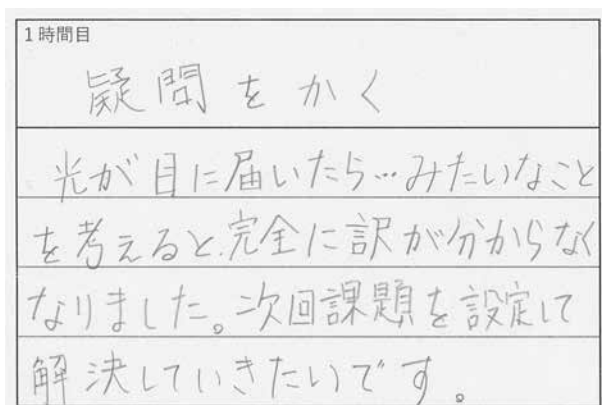 1時間目
疑問をかく
光が目に届いたら…みたいなこと
を考えると、完全に訳が分からなく
なりました。次回課題を設定して
解決していきたいです。